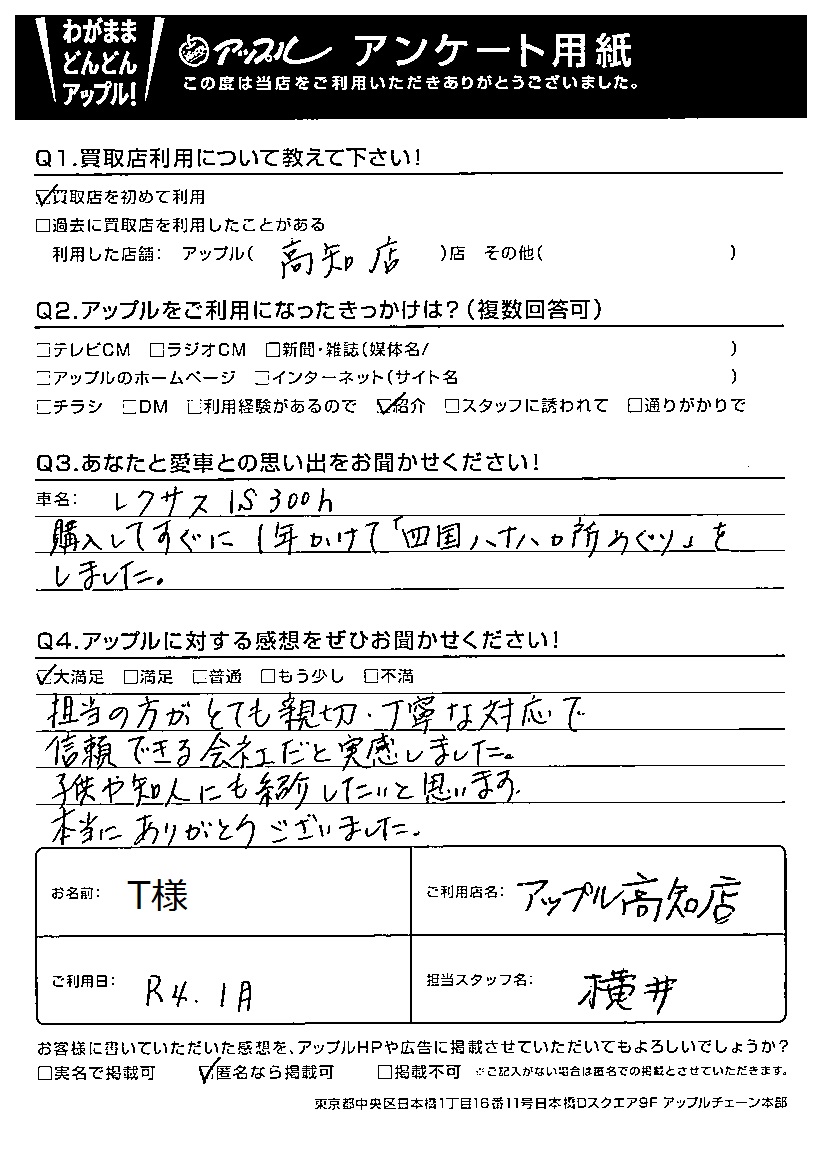 わがまま
どんどん
アップル!
アップル アンケート用紙
この度は当店をご利用いただきありがとうございました。
Q1.買取店利用について教えて下さい!
☑買取店を初めて利用
□過去に買取店を利用したことがある
利用した店舗: アップル( 高知店 )店 その他( )
Q2.アップルをご利用になったきっかけは?(複数回答可)
□テレビCM □ラジオCM □新聞・雑誌(媒体名/ )
□アップルのホームページ □インターネット(サイト名 )
□チラシ □DM □利用経験があるので ☑紹介 □スタッフに誘われて □通りがかりで
Q3.あなたと愛車との思い出をお聞かせください!
車名: レクサス IS300h
購入してすぐに1年かけて「四国八十八ヶ所めぐり」を
しました。
Q4.アップルに対する感想をぜひお聞かせください!
☑大満足 □満足 □普通 □もう少し □不満
担当の方がとても親切・丁寧な対応で
信頼できる会社だと実感しました。
子供や知人にも紹介したいと思います。
本当にありがとうございました。
お名前: T様
ご利用店名: アップル高知店
ご利用日: R4.1月
担当スタッフ名: 横井
お客様に書いていただいた感想を、アップルHPや広告に掲載させていただいてもよろしいでしょうか?
□実名で掲載可 ☑匿名なら掲載可 □掲載不可 ※ご記入がない場合は匿名での掲載とさせていただきます。
東京都中央区日本橋1丁目16番11号日本橋Dスクエア9F アップルチェーン本部